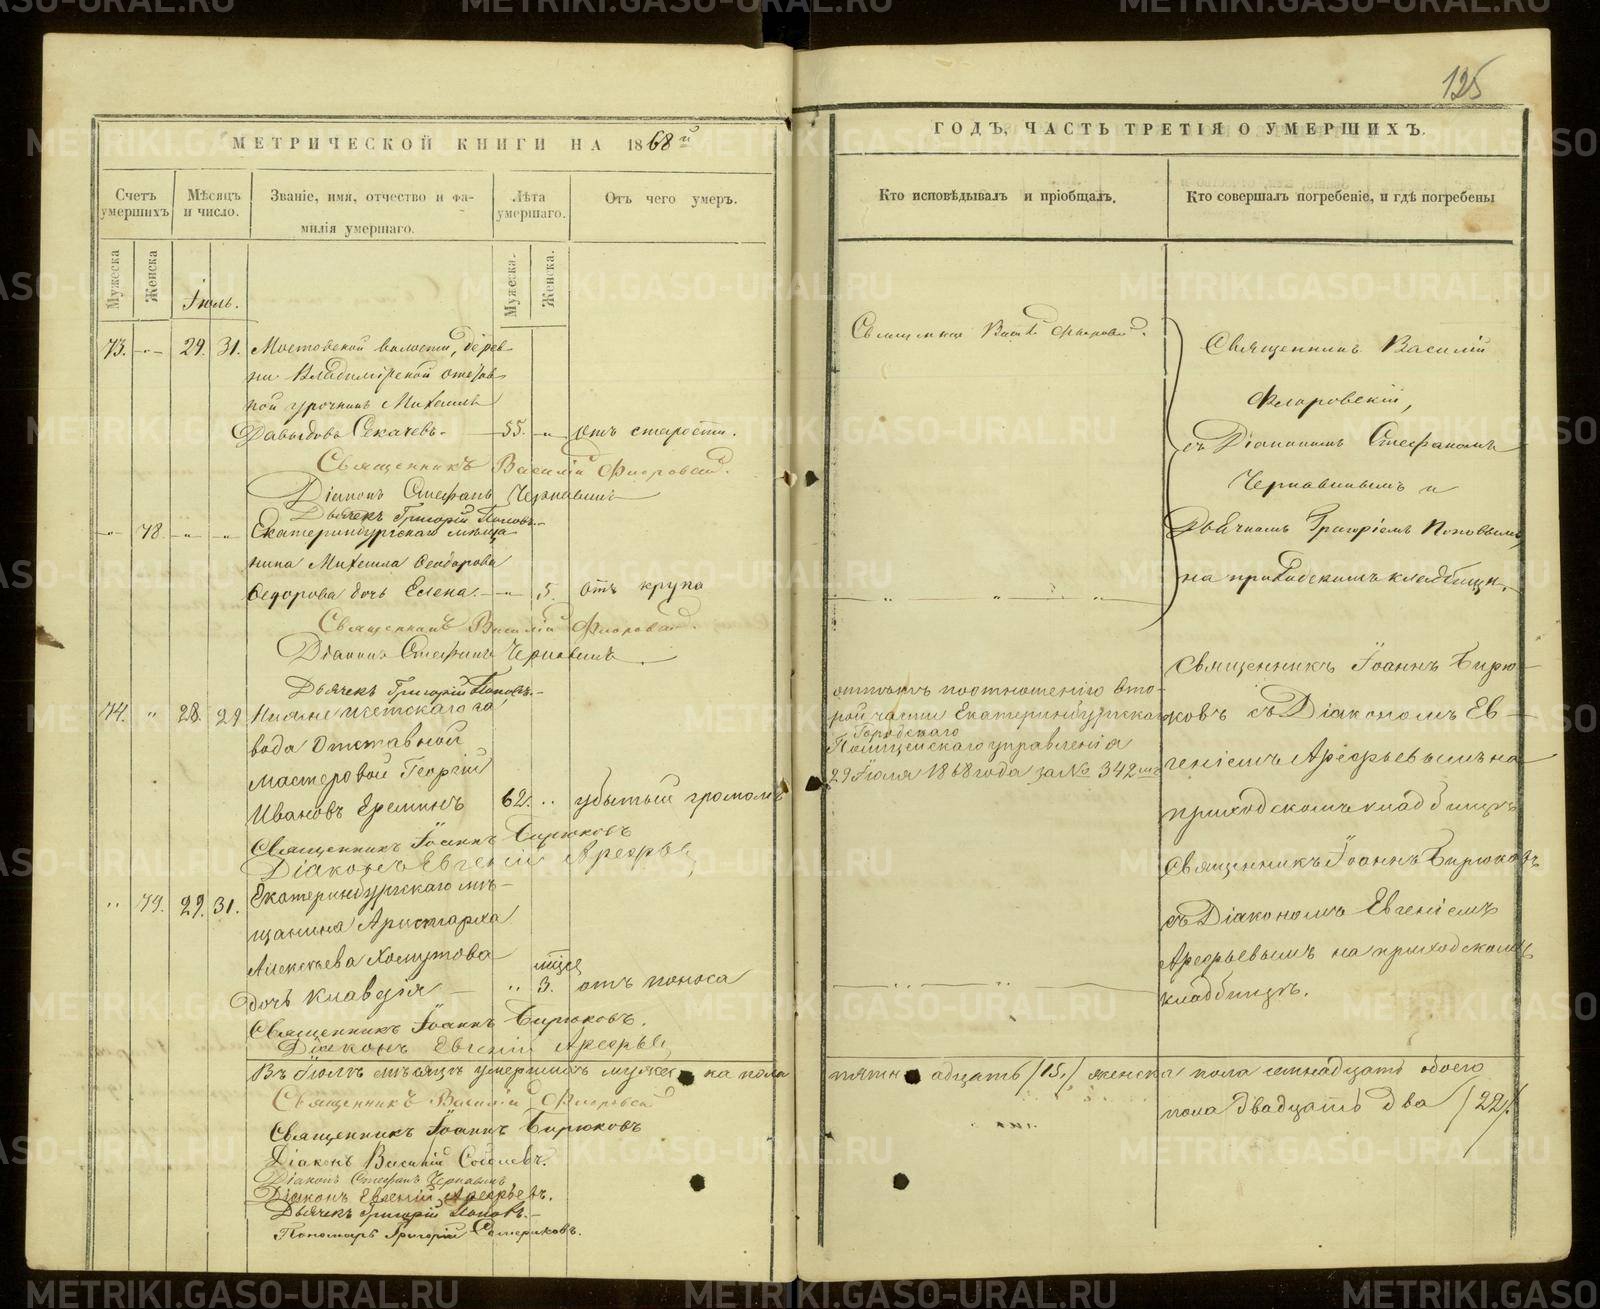 125
МЕТРИЧЕСКОЙ КНИГИ НА 1868й
ГОДЪ, ЧАСТЬ ТРЕТІЯ О УМЕРШИХЪ.
Счетъ умершихъ
Мѣсяцъ и число.
Званіе, имя, отчество и фа-
милія умершаго.
Лѣта умершаго.
Отъ чего умеръ.
Кто исповѣдывалъ и пріобщалъ.
Кто совершалъ погребеніе, и гдѣ погребены
Мужеска
Женска
Іюль.
Мужеска.
Женска.
73. -"- 29. 31. Мостовской волости, дерев-
ни Владимірской
урочникъ Михаилъ
Давыдовъ Секачевъ. 55. -"- отъ старости.
Священникъ Василій Флоровскій.
Діаконъ Стефанъ Чернавинъ
Дьячекъ Григорій Поповъ.
-"- 78. -"- -"- Екатеринбургскаго мѣща
нина Михаила Ѳеодорова
Ѳедорова дочь Елена. -"- 5. отъ крупа
Священникъ Василій Флоровскій.
Діаконъ Стефанъ Чернавинъ
Дьячекъ Григорій Поповъ.
74. " 28. 29 Нижне Исетскаго за
вода Отставной
мастеровой Георгій
Ивановъ Ереминъ 62. " убитый громомъ
Священникъ Іоаннъ Бирюковъ
Діаконъ Евгеній Арефьев
" 79. 29. 31. Екатеринбургскаго мѣ-
щанина Аристарха
Алексѣева Хомутова
дочь Клавдія " 3. мѣся отъ поноса
Священникъ Іоаннъ Бирюковъ.
Діаконъ Евгеній Арефьев
Въ Іюлѣ мѣсяцѣ умершихъ мужеска пола
Священникъ Василій Флоровскій
Священникъ Іоаннъ Бирюковъ
Діаконъ Василій Соболевъ.
Діаконъ Стефанъ Чернавинъ
Діаконъ Евгеній Арефьевъ.
Дьячекъ Григорій Поповъ.
Пономарь Григорій
Священникъ Васил Флоровскій.
Священникъ Василій
Флоровскій,
съ Діакономъ Стефаномъ
Чернавинымъ и
Дьячкомъ Григоріемъ Поповымъ,
на приходскомъ кладбищѣ.
отпѣтъ по отношенію вто-
рой части Екатеринбургска
Городскаго
Полицейскаго управленія
29 Іюля 1868 года за № 342мъ
Священникъ Іоаннъ Бирю-
ковъ съ Діакономъ Ев-
геніемъ Арефьевымъ на
приходскомъ кладбищѣ
Священникъ Іоаннъ Бирюковъ
съ Діакономъ Евгеніемъ
Арефьевымъ на приходскомъ
кладбищѣ.
пятнадцать (15) женска пола семнадцать обоего
пола двадцать два (22).
METRIKI.GASO-URAL.RU